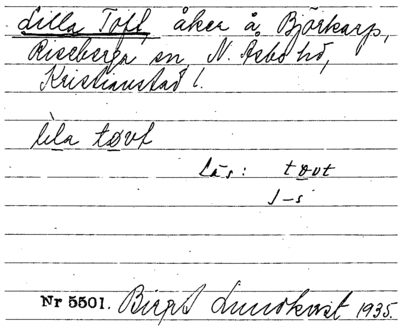 Lilla Toft, åker å Björkarp,
Riseberga sn, N. Åsbo hd,
Kristianstad l.
lila tovt
Läs: tovt
J–s
Nr 5501. Birgit Lundkvist 1935.